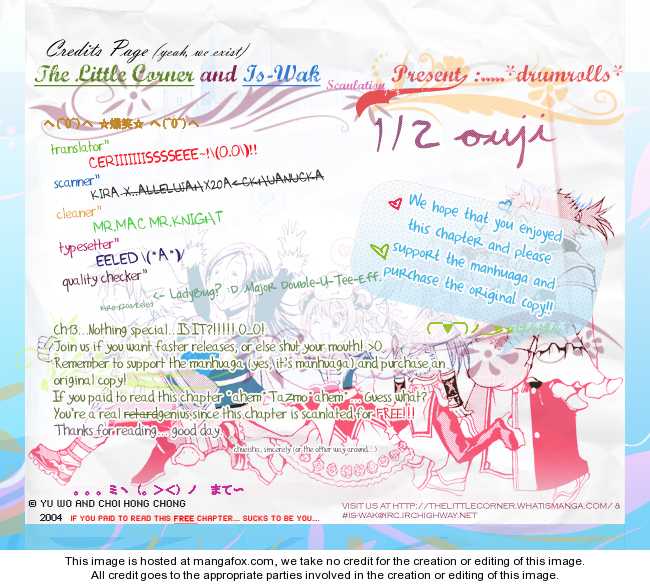 Credits Page (yeah, we exist)
The Little Corner and Is-Wak Scanlation Present, :.....*drumrolls*
1/2 ouji
translator"
CERIIIIIIISSSSEEE~!\(O.O\)!!
scanner"
KIRA X...ALLELUIAH X20A <- CKHUANUCKA
cleaner"
MR.MAC MR.KNIGHT
typesetter"
EELED \(*A*)/
quality checker"
<- LadyBug? :D Major Double-U-Tee-Eff.
We hope that you enjoyed
this chapter and please
support the manhuaga and
purchase the original copy!!
Ch13...Nothing special... IS IT?!!!!! O_O!
Join us if you want faster releases, or else shut your mouth! >O
Remember to support the manhuaga (yes, it's manhuaga) and purchase an
original copy!
If you paid to read this chapter *ahem* Tazmo *ahem*... Guess what?
You're a real retard genius since this chapter is scanlated for FREE!!!
Thanks for reading... good day.
chueisho, sincerely (or the other way around...)
。。。ミヽ(。><)ノ まて~
© YU WO AND CHOI HONG CHONG
2004 IF YOU PAID TO READ THIS FREE CHAPTER... SUCKS TO BE YOU...
VISIT US AT HTTP://THELITTLECORNER.WHATISMANGA.COM/ &
#IS-WAK@IRC.IRCHIGHWAY.NET
This image is hosted at mangafox.com, we take no credit for the creation or editing of this image.
All credit goes to the appropriate parties involved in the creation or editing of this image.